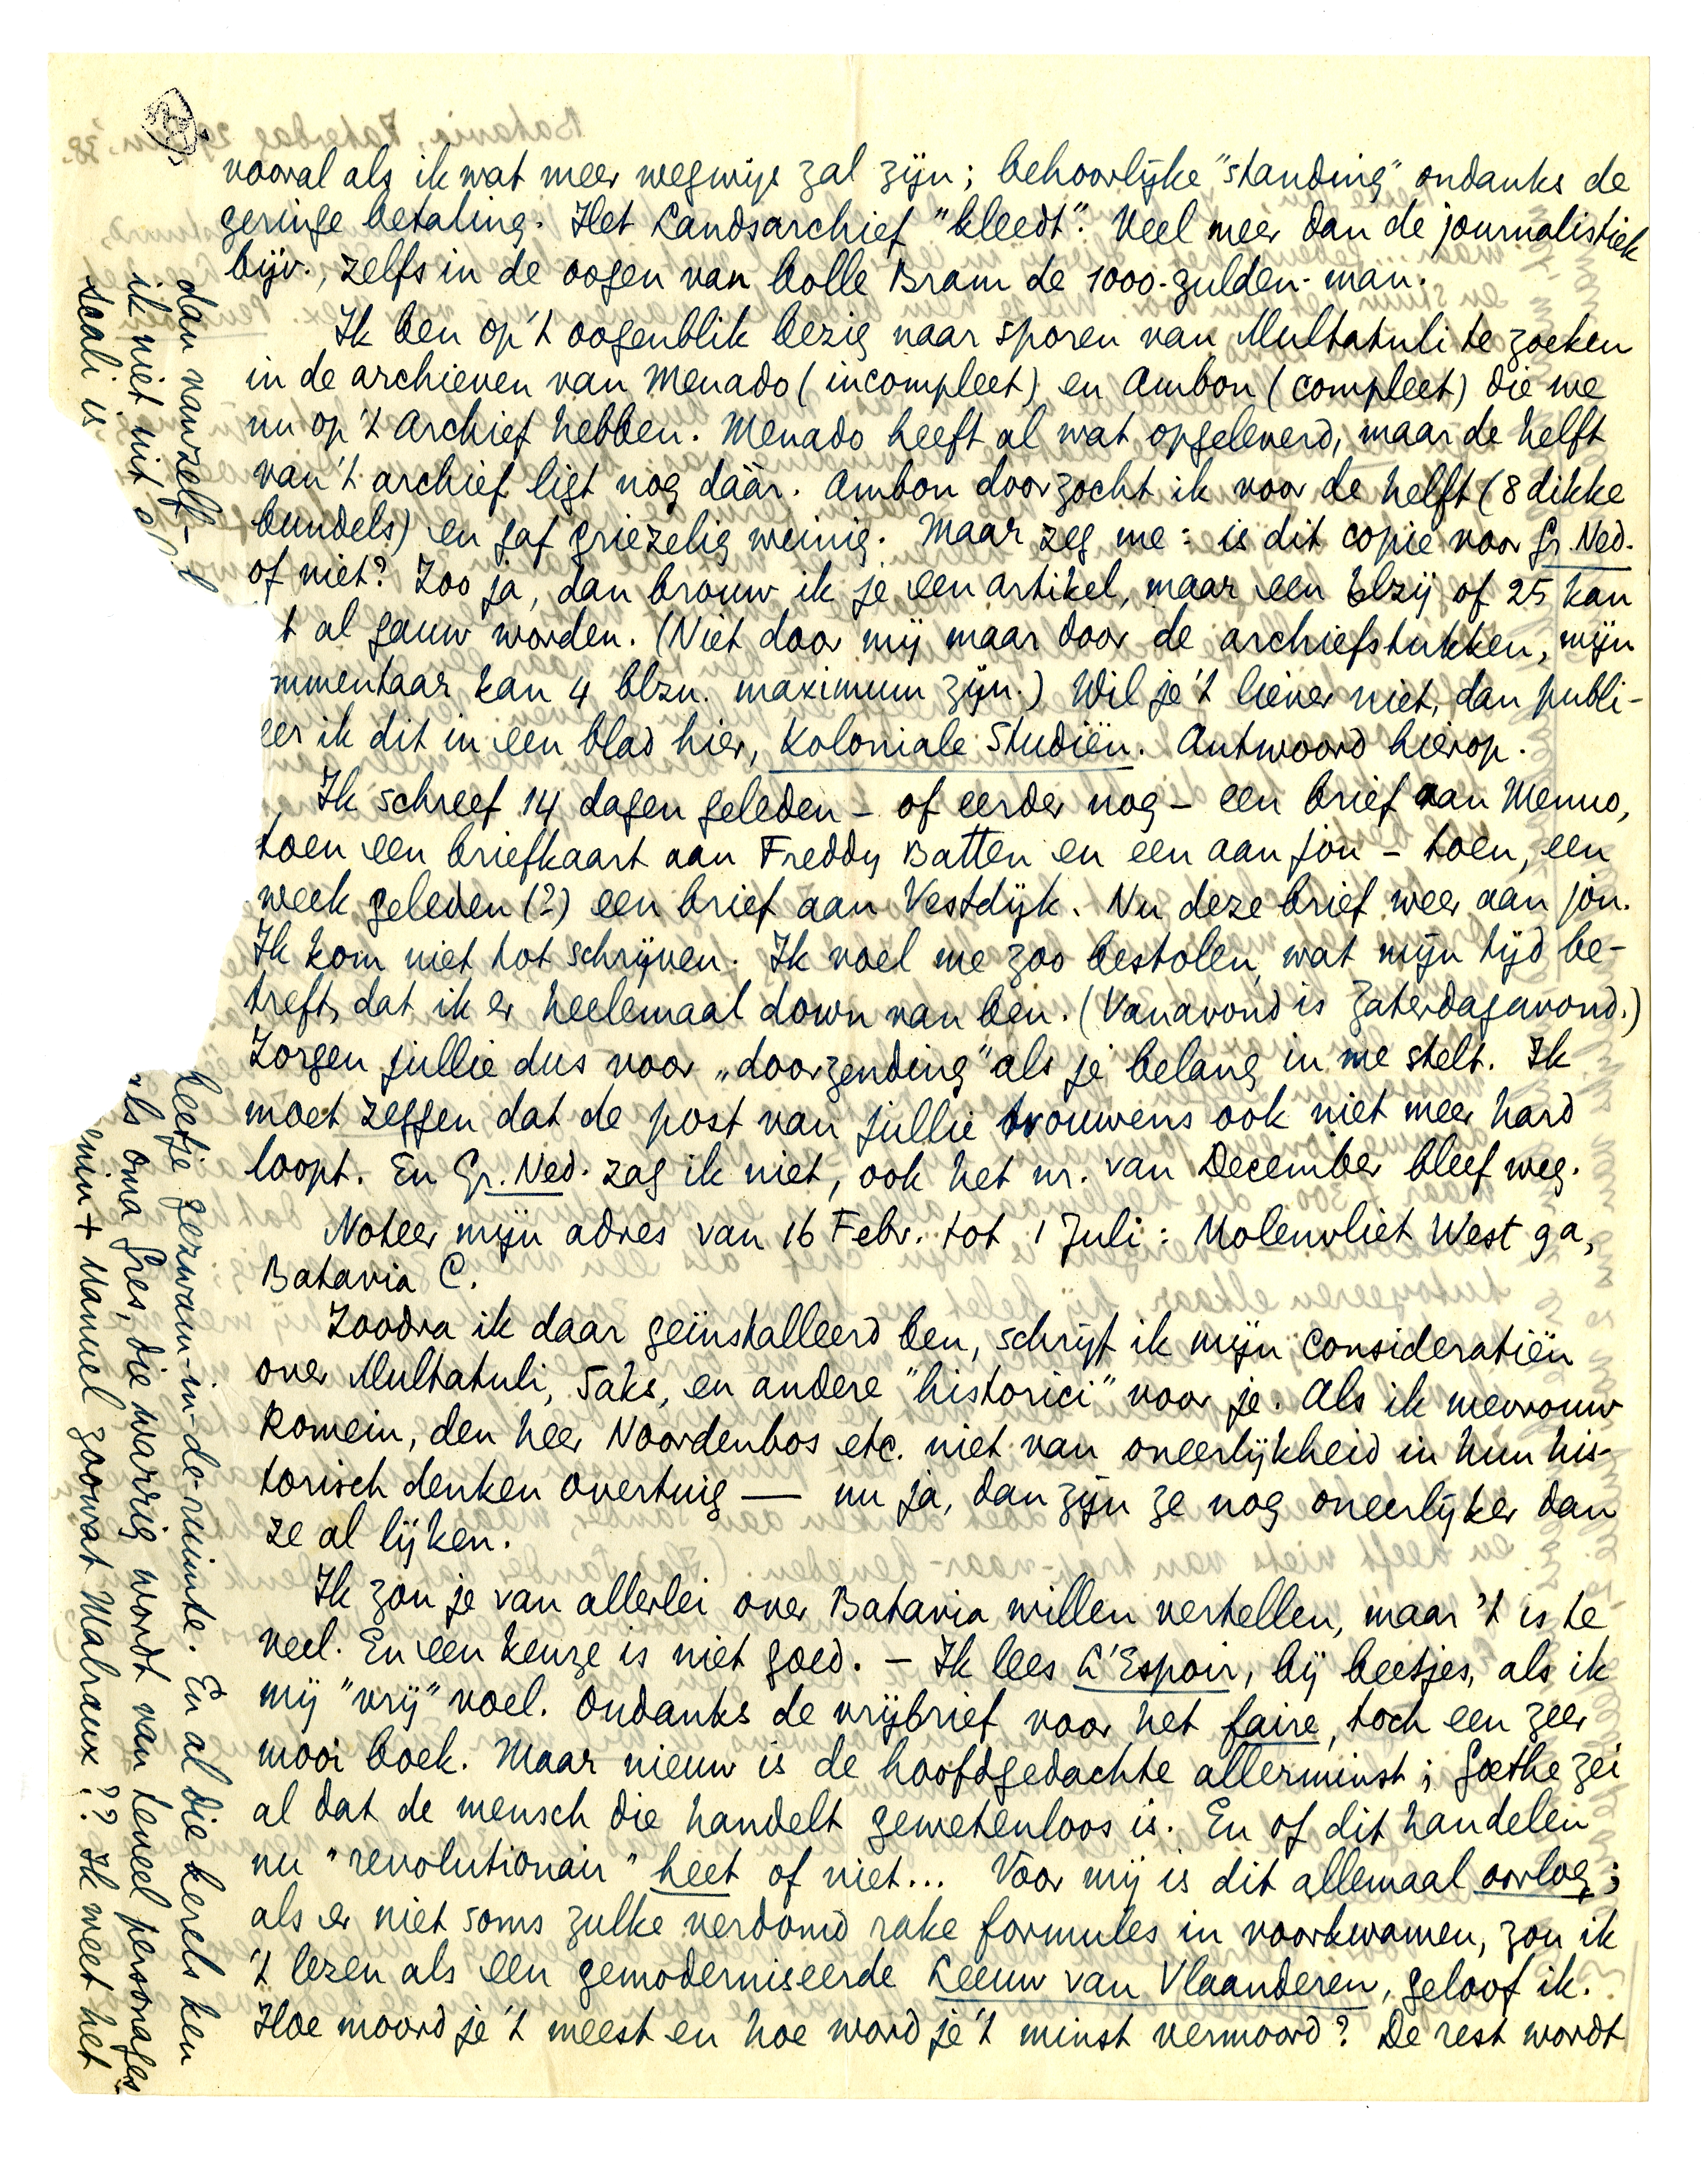 vooral als ik wat meer wegwijs zal zijn; behoorlijke "standing" ondanks de
geringe betaling. Het Landsarchief "kleedt". Veel meer dan de journalistiek
bijv., zelfs in de oogen van bolle Bram de 1000-gulden-man.
Ik ben op 't oogenblik bezig naar sporen van Multatuli te zoeken
in de archieven van Menado (incompleet) en Ambon (compleet) die we
nu op 't Archief hebben. Menado heeft al wat opgeleverd, maar de helft
van 't archief ligt nog dáár. Ambon doorzocht ik voor de helft (8 dikke
bundels) en gaf griezelig weinig. Maar zeg me: is dit copie voor Gr. Ned.
of niet? Zoo ja, dan brouw ik je een artikel, maar een blzij of 25 kan
't al gauw worden. (Niet door mij maar door de archiefstukken, mijn
mmentaar kan 4 blzn. maximum zijn.) Wil je 't liever niet, dan publi-
eer ik dit in een blad hier, Koloniale Studiën. Antwoord hierop.
Ik schreef 14 dagen geleden - of eerder nog - een brief aan Menno,
toen een briefkaart aan Freddy Batten en een aan jou - toen, een
week geleden (?) een brief aan Vestdijk. Nu deze brief weer aan jou.
Ik kom niet tot schrijven. Ik voel me zoo bestolen, wat mijn tijd be-
treft, dat ik er heelemaal down van ben. (Vanavond is Zaterdagavond.)
Zorgen jullie dus voor „doorzending" als je belang in me stelt. Ik
moet zeggen dat de post van jullie trouwens ook niet meer hard
loopt. En Gr. Ned. zag ik niet, ook het nr. van December bleef weg.
Noteer mijn adres van 16 Febr. tot 1 Juli: Molenvliet West 9a,
Batavia C.
Zoodra ik daar geïnstalleerd ben, schrijf ik mijn consideratiën
over Multatuli, Saks, en andere "historici" voor je. Als ik mevrouw
Romein, den heer Noordenbos etc. niet van oneerlijkheid in hun his-
torisch denken overtuig — nu ja, dan zijn ze nog oneerlijker dan
ze al lijken.
Ik zou je van allerlei over Batavia willen vertellen, maar 't is te
veel. En een keuze is niet goed. - Ik lees L'Espoir, bij beetjes, als ik
mij "vrij" voel. Ondanks de vrijbrief voor het faire, toch een zeer
mooi boek. Maar nieuw is de hoofdgedachte allerminst; Goethe zei
al dat de mensch die handelt gewetenloos is. En of dit handelen
nu "revolutionair" heet of niet... Voor mij is dit allemaal oorlog;
als er niet soms zulke verdomd rake formules in voorkwamen, zou ik
't lezen als een gemoderniseerde Leeuw van Vlaanderen, geloof ik.
Hoe moord je 't meest en hoe word je 't minst vermoord? De rest wordt
dan vanzelf-
heetje gezwam-in-de-ruimte. En al die kerels ken
ik niet uit
als oma Gres, die warrig wordt van teveel personages
Scali is
enin + Manuel zoowat Malraux?? Ik weet het
Batavia, Zaterdag 29 Jan. '38.